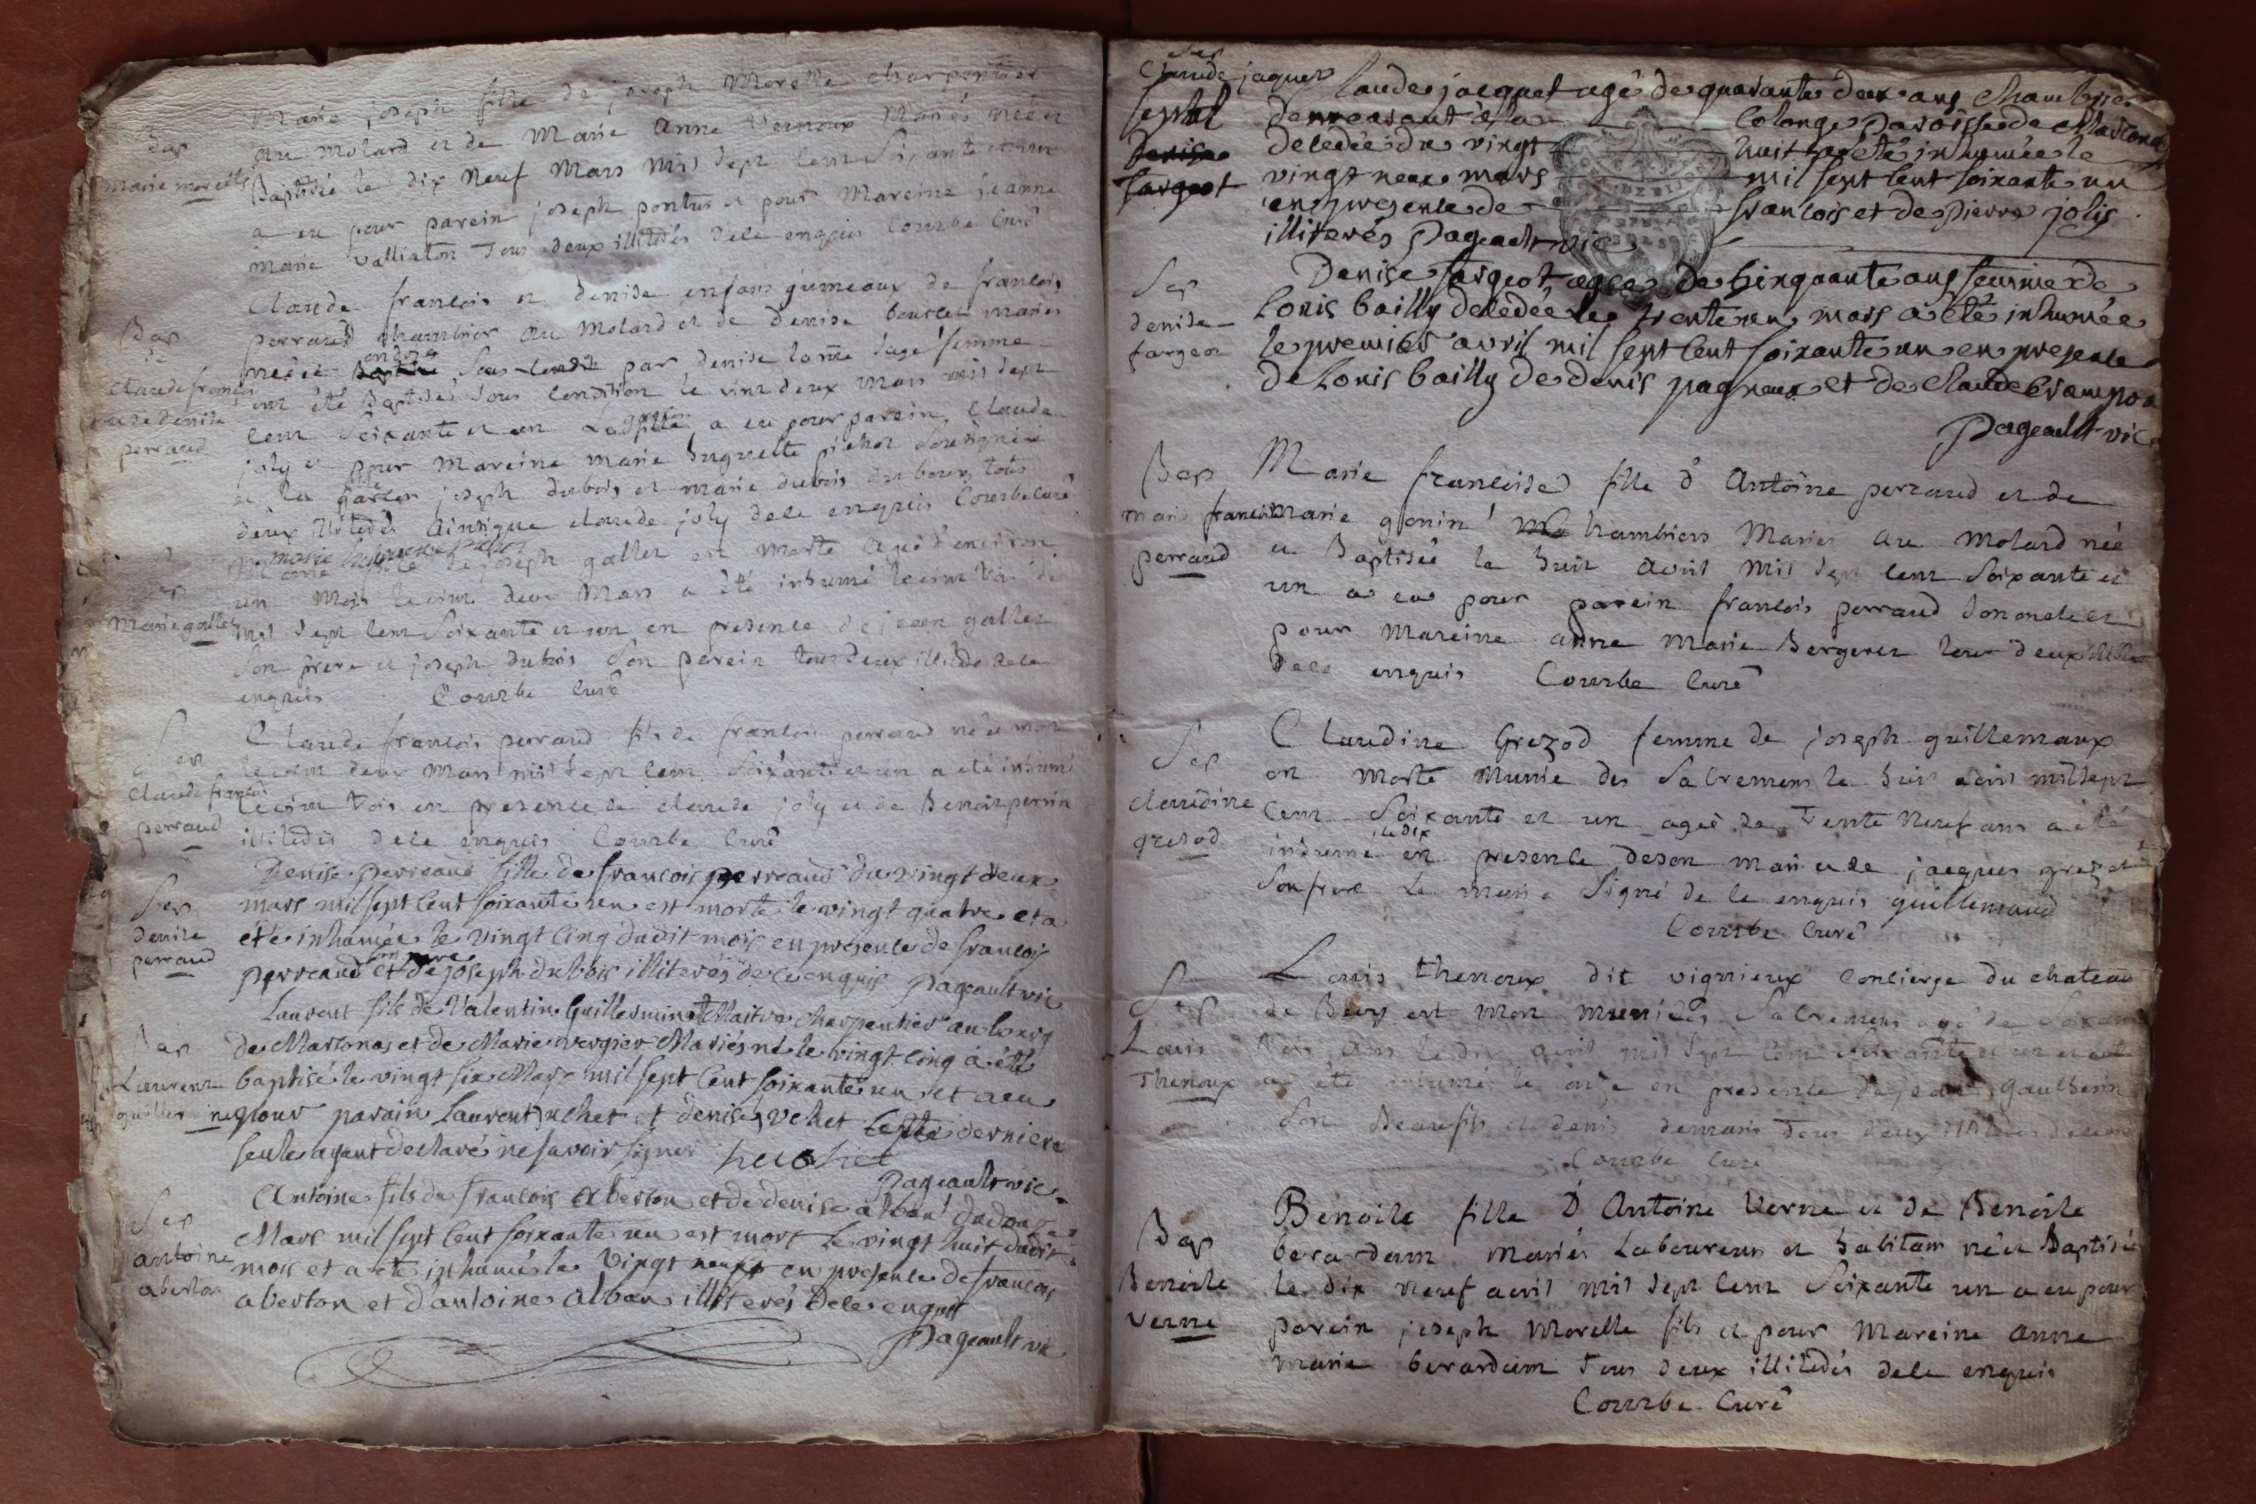 Bap
marie morelle
Marie joseph fille de joseph Morelle charpentier
au molard et de Marie Anne Vernoux Mariés née et
Baptisée le dix neuf Mars mil sept cent soixante et un
a eu pour parein joseph pontus et pour Mareine jeanne
marie valliaton Tous deux illiterés de ce enquis Courbe Curé
Bap
Claude francois
et denise
perraud
Claude francois et denise enfans gumeaux de francois
perraud chambrier au Molard et de denise mariés
née et ondoié sous condit par denise lamé sage femme
ont été Baptisés sous condition le vint deux mars mil sept
cent soixante et un Le garçon a eu pour parein Claude
joly et pour Mareine marie huguette pichot soussignée
et la fille joseph dubois et marie dubois du bourg tous
deux illiterés ainsique claude joly de ce enquis Courbe curé
Sep
Marie gallet
Marie fille de joseph gallet est Morte agée d'environ
un Mois le vint deux Mars a été inhumé le vint trois
mil sept cent soixante et un en presence de jean gallet
son frere et joseph dubois son parein tous deux illiteres de ce
enquis Courbe Curé
Sep
Claude francois
perraud
Claude francois perraud fils de francois perraud né et mort
le vint deux Mars mil sept cent soixante et un a été inhumé
le vint trois en presence de claude joly et de Benoit perrin
illiterés de ce enquis Courbe Curé
Sep
denise
perraud
Denise perreaud fille de francois perreaud du vingt deux
mars mil sept cent soixante un est morte le vingt quatre et a
été inhumée le vingt cinq dudit mois en presence de francois
perreaud son pere et de joseph dubois illiterés de ce enquis Pageault vic
Bap
Laurent
guillermine
Laurent fils de Valentin Guillerminet Maitre charpentier au bourg
de Marsonas et de Marie vergier Mariés né le vingt cinq a été
baptisé le vingt six Mars mil sept cent soixante un et a eu
pour parain Laurent uchet et denise uchet cette derniere
seule ayant declaré ne savoir signer
Pageault vic
Sep
antoine
aberton
Antoine fils de francois Aberton et de denise alban du douze
Mars mil sept cent soixante un est mort le vingt huit dudit
mois et a été inhumé le vingt neuf en presence de francois
aberton et d'antoine alban illiterés de ce enquis
Pageault vic
Sep
Claude jaquet
Sepul
Denise
fargeot
Claude jacquet agé de quarante deux ans chambrier
demeurant à la Colonge paroisse de Marsonas
decedée du vingt huit a été inhumée le
vingt neuf mars mil sept cent soixante un
en presence de francois et de pierre jolis
illiterés Pageault vic
Sep
denise
fargeot
Denise fargeot agée de cinquante ans femme de
Louis bailly decedée le trente un mars a été inhumée
le premier avril mil sept cent soixante un en presence
de Louis bailly de denis pagneux et de claude
Pageault vic
Bap
marie francoise
perraud
Marie francoise fille d'Antoine perraud et de
marie gonin chambriers Mariés au molard née
et Baptisée le huit Avril Mil sept cent soixante et
un a eu pour parein francois perraud son oncle et
pour Mareine anne Marie Bergeret tous deux illiterés
de ce enquis Courbe Curé
Sep
claudine
grezod
Claudine Grezod femme de joseph guillemaux
est Morte Munie des Sacremens le huit avril mil sept
cent soixante et un agée de Trente Neuf ans a été
inhumé le dix en presence de son mari et de jacques grezod
son frere Le mari a Signé de ce enquis guillemaud
Courbe Curé
Sep
Louis
Thenoux
Louis thenoux dit vignieux concierge du chateau
de Beôst est Mort muni des Sacremens agé de soixante
trois ans le dix avril mil sept cent soixante et un et
a été inhumé le onze en presence de jean Gautherin
son Beaufils et denis demain Tous deux illiteres de ce enquis
Courbe Curé
Bap
Benoite
verne
Benoite fille d'Antoine Verne et de Benoite
berardam mariés Laboureurs et habitans née et Baptisée
le dix neuf avril mil sept cent soixante un a eu pour
parein joseph Morelle fils et pour Mareine anne
marie berardam Tous deux illiterés de ce enquis
Courbe Curé